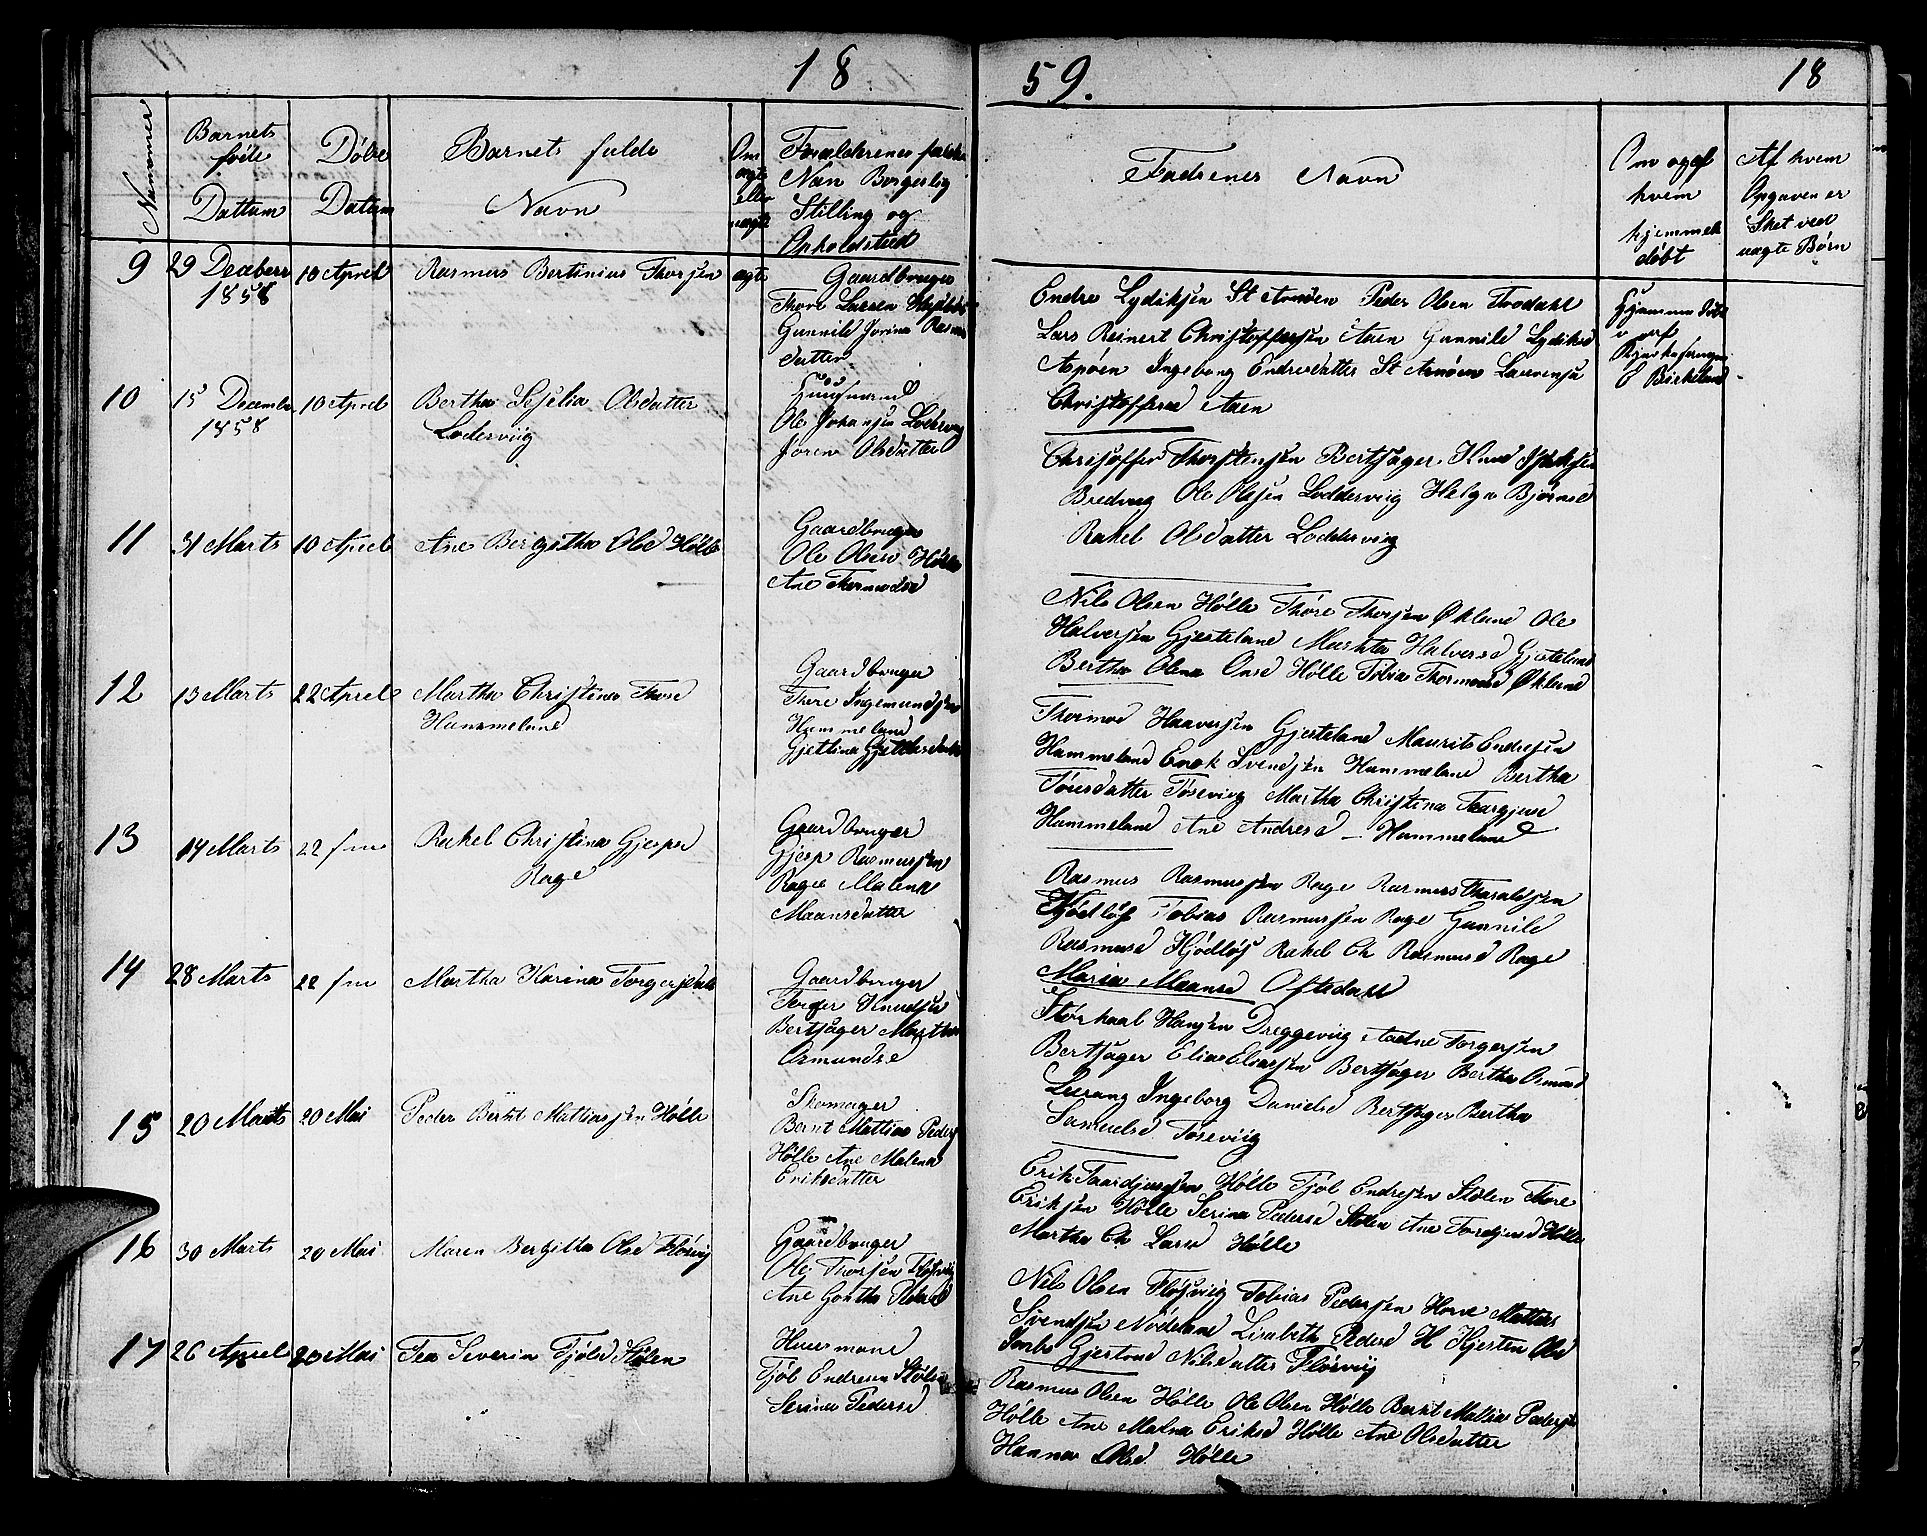 18 59. 18
Nummer
Barnets
føde
Dattum
Døbe
Datum
Barnets fulde
Navn
Om
ægte
eller
uægte
Forældrenes fulde
Navn Borgerlig
Stilling og
Opholdsted
Fadrenes Navn
Om og af
hvem
hjemme
døbt
Af hvem
Opgaven er
Sket ved
uægte Børn
9 29 Deceberr 10 Aprel Rasmus Bertinius Thorsen ægte Gaardbruger
1858
Thore Larsen
Gunnild Jorina Rasmus
datter
Endre Lydiksen St Arnøen Peder Olsen Frodahl
Lars Reinert Christoffersen Aaen Gunnild Lydiksd
Aspøen Ingeborg Endredatter St Arnøen Laurensa
Christoffersd Aaen
Hjemme døbt
af
E Birkeland
10 15 December 10 Aprel Bertha Olsdatter
1858 Lodervig
Huusmand
Ole Johansen Lodervig
Joren Olsdatter
Chrisoffer Thorstensen Bertsager Knud
Bredvig Ole Olsen Loddervig Helga Bjørnsd
Rakel Olsdatter Loddervig
11 31 Marts 10 Aprel Ane Bergitha Olsd Hølle
Gaardbruger
Ole Olsen Hølle
Ane Thormodsd
Nils Olsen Hølle Thore Thorsen Økland Ole
Halversen Gjesteland Martha Halversd Gjesteland
Bertha Olena Onsd Hølle Tobia Thormodsd Økland
12 13 Marts 22 Aprel Martha Christina Thorsd
Hammeland
Gaardbruger
Thore Ingemundsen
Hammeland
Gjertina
Thormod Haaversen Gjesteland Maurits Endresen
Hammeland Enok Svendsen Hammeland Bertha
Tørresdatter Tosevig Martha Christina Taargjusd
Hammeland Ane Andresd - Hammeland
13 14 Marts 22 Rakel Christina Gjespsd
Rage
Gaardbruger
Gjesp Rasmussen
Rage Malena
Maansdatter
Rasmus Rasmussen Rage Rasmus Tharaldsen
Hjødløf Tobias Rasmussen Rage Gunnild
Rasmusd Hjødløf Rakel Ch Rasmusd Rage
Maria Maansd Oftedahl
14 28 Marts 22 Martha Karina
Gaardbruger
Torger Knudsen
Bertsager Martha
Osmundsd
Storkaal Hansen Dreggevig Aadne Torgersen
Bertsager Elias Eliassen Bertsager Bertha Osmund
Ingeborg Danielsd Bertsager Bertha
Samuelsd Tosevig
15 20 Marts 20 Mai Peder Bernt Mattiassen Hølle
Skomager
Bernt Mattias Peders
Hølle Ane Malena
Eriksdatter
Erik Taardjussen Hølle Tjøl Endresen Stølen Thore
Eriksen Hølle Serina Pedersd Stølen Ane Hølle
Martha Ch Larsd Hølle
16 30 Marts 20 Mai Maren Bergitha Olsd Fløsvig
Gaardbruger
Ole Thorsen Fløsvig
Ane Gortha
Nils Olsen Fløsvig Tobias Pedersen Horve Mattias
Svendsen Nødeland Lisabeth Pedersd H Kjersten Olsd
Gjertrud Nilsdatter Fløsvig
17 26 Aprel 20 Mai Tea Severin Tjølsd Stølen
Huusmand
Tjøl Endresen Stølen
Serina Pedersd
Rasmus Olsen Hølle Ole Olsen Hølle Bernt Mattias Pedersen
Hølle Ane Malna Eriksd Hølle Ane Olsdatter
Hanna Olsd Hølle